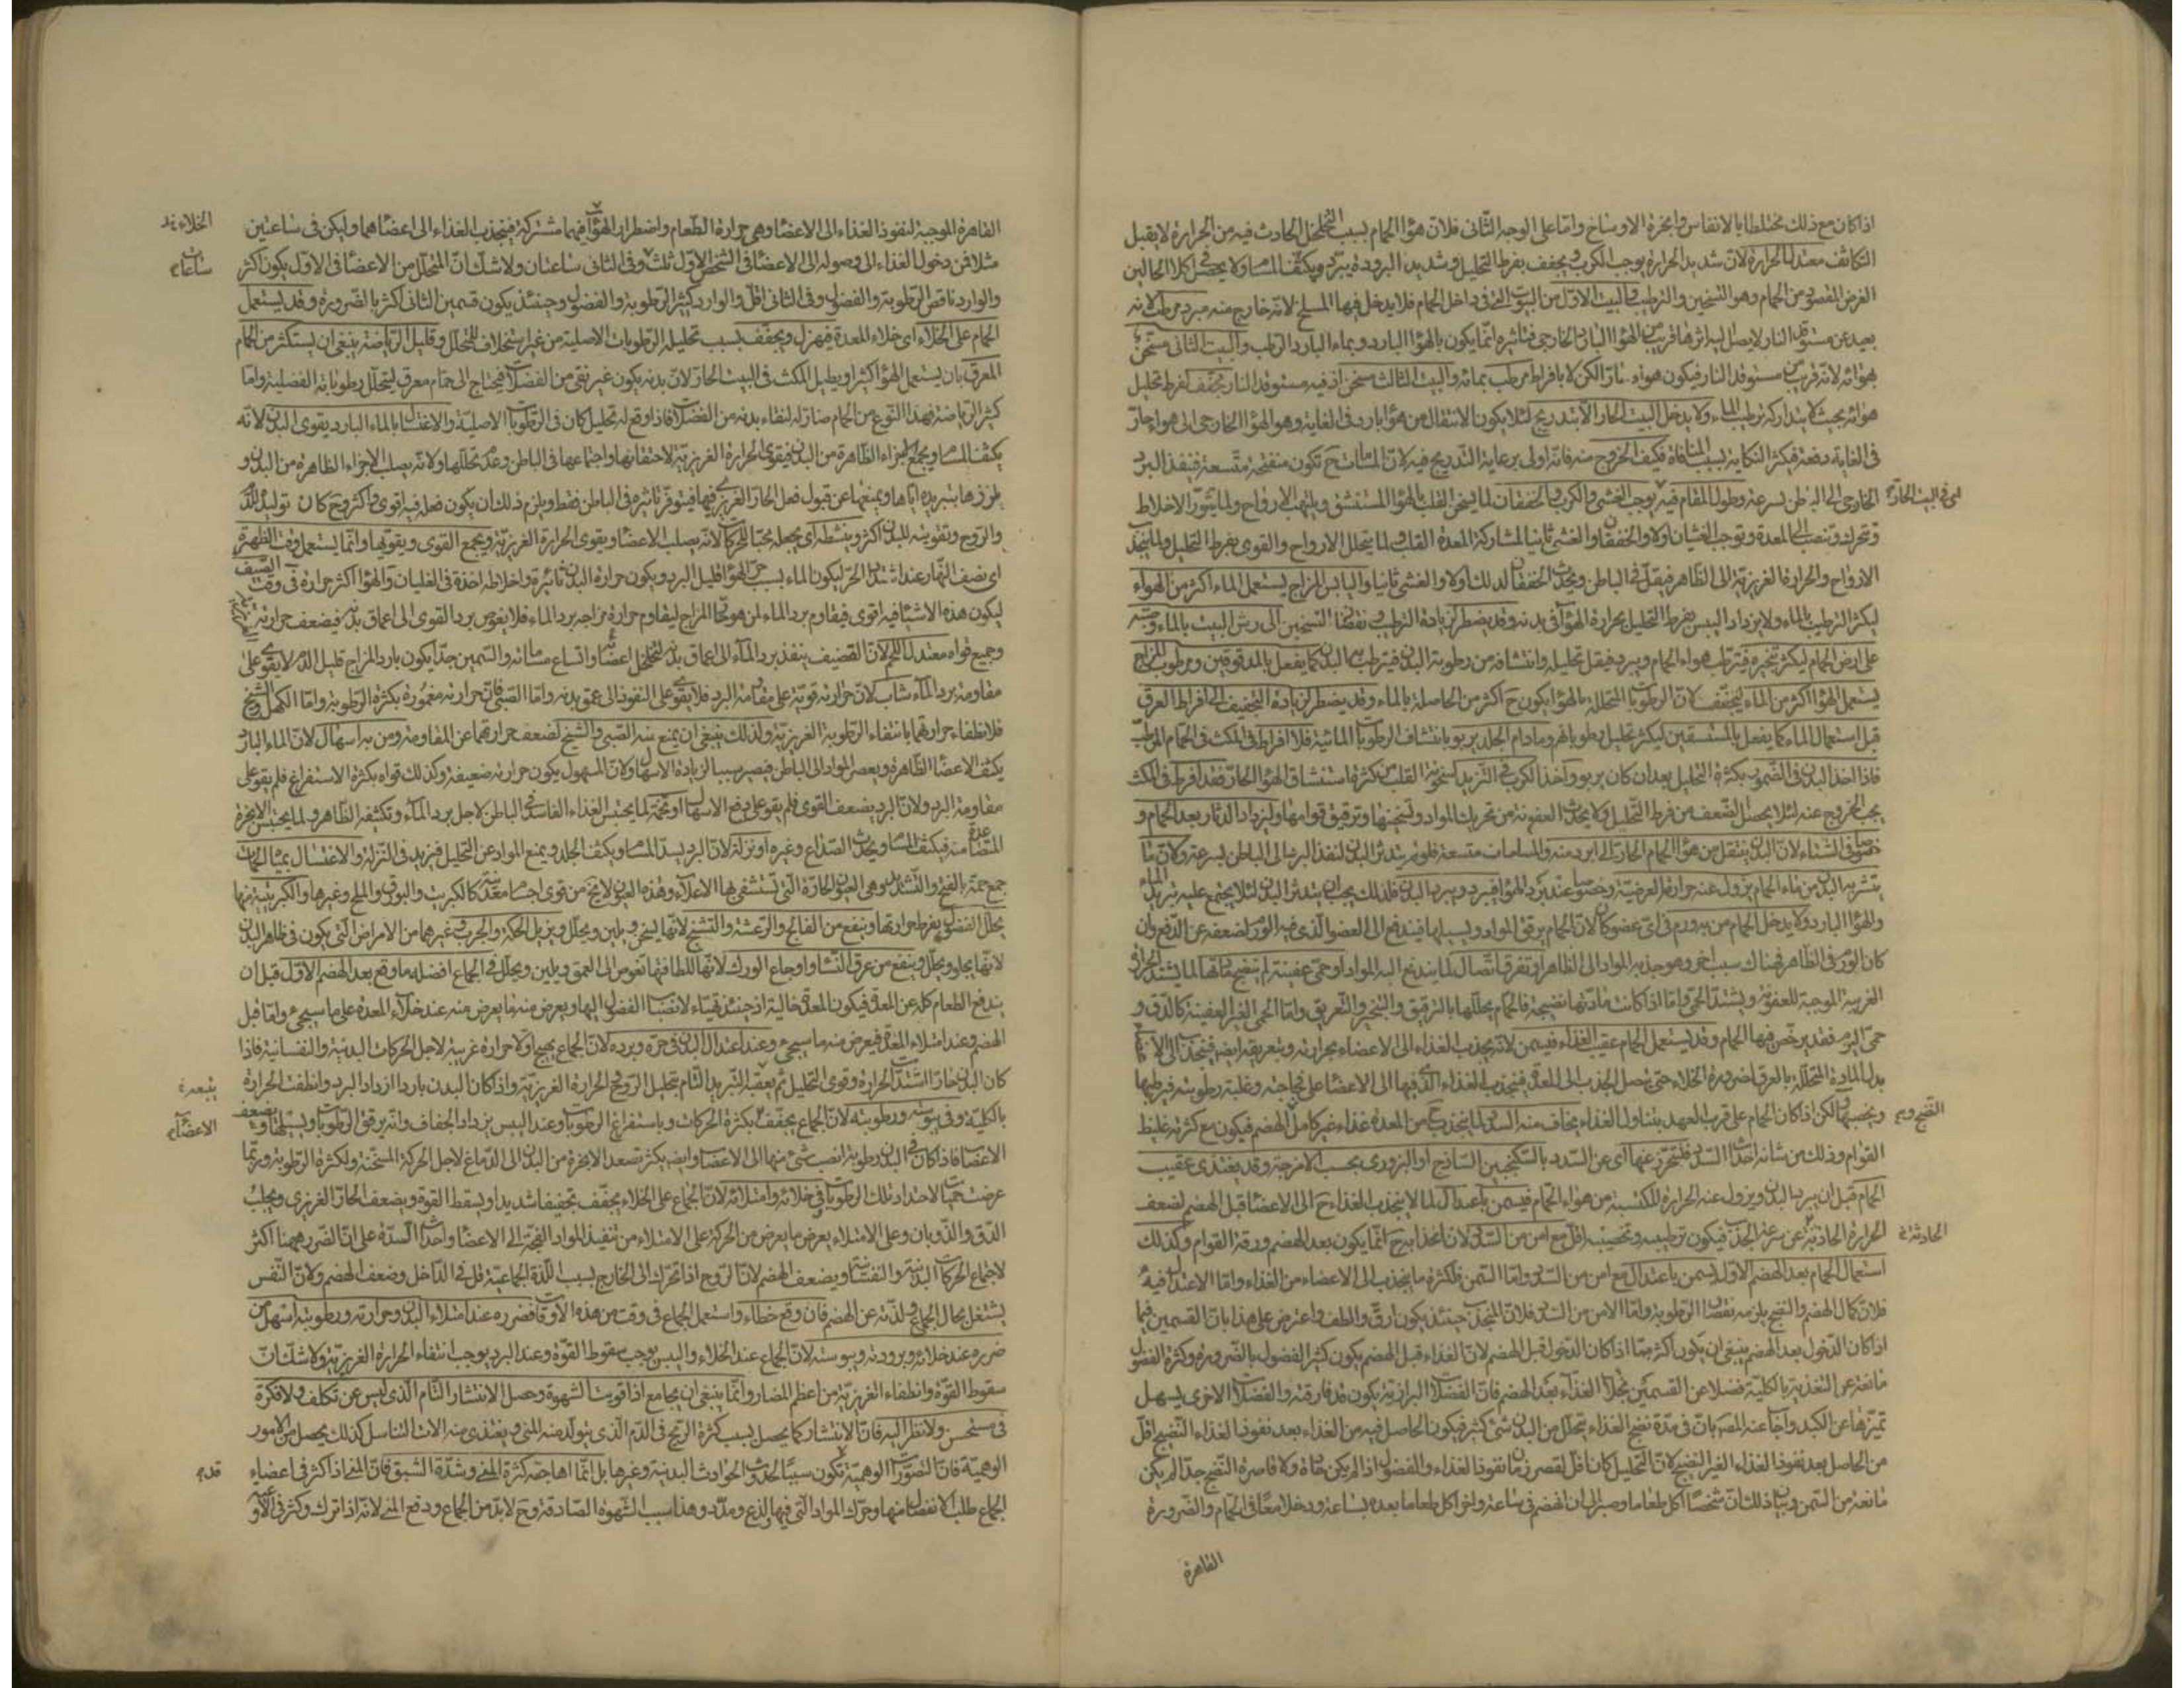 اذا كان مع ذلك مختلطا بالانفاس وابخرة الاوساخ واما على الوجه الثانى فلان هواء الحمام بسبب التخلخل الحادث فيه من الحرارة لا يقبل
التكاثف معتدل الحرارة لان شديد الحرارة يوجب الكرب ويجفف بفرط التحليل وشديد البرودة يبرد ويكثف المسام ولا يحصل فى كلا الحالين
الغرض المقصود من الحمام وهو التسخين والترطيب والبيت الاول من البيوت التى فى داخل الحمام فلا يدخل فيها المسلخ لانه خارج منه مبرد مرطب لانه
بعيد عن مستوقد النار لا يصل اليه اثرها قريب من الهواء البارد الخارجى فتاثيره انما يكون بالهواء البارد وبماء البارد الرطب والبيت الثانى مسخن
بهوائه لانه قريب من مستوقد النار فيكون هواءه حارا لكن لا بافراط مرطب بمائه والبيت الثالث مسخن اذ فيه مستوقد النار مجفف لفرط تحليل
هوائه بحيث لا يتداركه ترطيب الماء ولا يدخل البيت الحار الا بتدريج لئلا يكون الانتقال من هواء بارد فى الغاية وهو الهواء الخارجى الى هواء حار
فى الغاية دفعة فيكثر النكاية بسبب المنافاة فكيف الخروج منه فانه اولى برعاية التدريج فيه لان المسامات ح تكون منفتحة متسعة فينفذ البرد
الخارجى الى الباطن بسرعة وطول المقام فيه يوجب الغشى والكرب والخفقان لما يسخن القلب بالهواء المستنشق ويلتهب الارواح ولما يتثور الاخلاط
اى فى البيت الحار
وتتحرك وتنصب الى المعدة وتوجب الغثيان اولا والخفقان والغشى ثانيا لمشاركة المعدة القلب ولما يتحلل الارواح والقوى بفرط التحليل ولما ينجذب
الارواح والحرارة الغريزية الى الظاهر فيقل فى الباطن ويحدث الخفقان لذلك اولا والغشى ثانيا واليابس المزاج يستعمل الماء اكثر من الهواء
ليكثر الترطيب بالماء ولا يزداد اليبس بفرط التحليل بحرارة الهواء فى بدنه وقد يضطر لزيادة الترطيب ونقصان التسخين الى رش البيت بالماء وصبه
على ارض الحمام ليكثر تبخره فيترطب هواء الحمام ويبرد فيقل تحليله وانتشافه من رطوبة البدن فيترطب به البدن كما يفعل بالمدقوقين ومرطوب المزاج
يستعمل الهواء اكثر من الماء ليجفف لان الرطوبات المتحللة بالهواء يكون ح اكثر من الحاصلة بالماء وقد يضطر لزيادة التجفيف الى افراط العرق
قبل استعمال الماء كما يفعل بالمستسقين ليكثر تحليل رطوباتهم ومادام الجلد يربو بانتشاف الرطوبات المائية فلا افراط فى المكث فى الحمام المرطب
فاذا اخذ البدن فى الضمور بكثرة التحليل بعد ان كان يربو واخذ الكرب فى التزيد لسخونة القلب من كثرة استنشاق الهواء الحار فقد افرط فى المكث
يجب الخروج عنه لئلا يحصل الضعف من فرط التحليل ولا يحدث العفونة من تحريك المواد وتسخينها وترقيق قوامها وليزداد الدثار بعد الحمام و
خصوصا فى الشتاء لان البدن ينتقل من هواء الحمام الحار الى ابرد منه والمسامات متسعة فلو لم يتدثر البدن لنفذ البرد الى الباطن بسرعة ولان ما
يتشربه البدن من ماء الحمام يزول عنه حرارته العرضية وخصوصا عند برد الهواء فيبرد ويبرد البدن فلذلك يجب ان يتدثر البدن لئلا يجتمع عليه تبريد الماء
والهواء البارد ولا يدخل الحمام من به ورم فى اى عضو كان لان الحمام يرقق المواد ويسيلها فيندفع الى العضو الذى فيه الورم لضعفه عن الدفع وان
كان الورم فى الظاهر فهناك سبب اخر وهو جذبه المواد الى الظاهر او تفرق اتصال لما يندفع اليه المواد او حمى عفنية لم ينضج مادتها لما يشتد الحرارة
الغريبة الموجبة للعفونة ويشتد الحمى واما اذا كانت مادتها نضيجة فالحمام يحللها بالترقيق والتبخير والتعريق واما الحمى الغير العفنية كالدق و
حمى اليوم فقد يرخص فيها الحمام وقد يستعمل الحمام عقيب الغذاء فيسمن لانه يجذب الغذاء الى الاعضاء بحرارته وبتعريقه ايضا فينجذب الى الاعضاء
بدل المادة المتحللة بالعرق ضرورة الخلاء حتى يصل الجذب الى المعدة فينجذب الغذاء الذى فيها الى الاعضاء على فجاجته وغلبة رطوبته فيرطبها
ويخصبها ولكن اذا كان الحمام على قرب العهد بتناول الغذاء يخاف منه السدد لما ينجذب من المعدة غذاء غير كامل الهضم فيكون مع كثرته غليظ
القوام وذلك من شانه احداث السدد فليتحرز عنها اى عن السدد بالسكنجبين الساذج او البزورى بحسب الامزجة وقد يغتذى عقيب
الحمام قبل ان يبرد البدن ويزول عنه الحرارة المكتسبة من هواء الحمام فيسمن باعتدال لما لا ينجذب الغذاء ح الى الاعضاء قبل الهضم لضعف
الحرارة الحادثة عن سرعة الجذب فيكون ترطيبه وتخصيبه اقل مع امن من السدد لان انجذابه ح انما يكون بعد الهضم ورقة القوام وكذلك
استعمال الحمام بعد الهضم الاول يسمن باعتدال مع امن من السدد واما التسمين فلكثرة ما ينجذب الى الاعضاء من الغذاء واما الاعتدال فيه
فلان كمال الهضم والنضج يلزمه نقصان الرطوبة واما الامن من السدد فلان المنجذب حينئذ يكون ارق والطف واعترض على هذا بان القسمين فيما
اذا كان الدخول بعد الهضم ينبغى ان يكون اكثر مما اذا كان الدخول قبل الهضم لان الغذاء قبل الهضم يكون كثير الفضول بالضرورة وكثرة الفضول
مانعة عن التغذية بالكلية فضلا عن القسمين بخلاف الغذاء بعد الهضم فان الفضلات البرازية يكون قد فارقته والفضلات الاخرى يسهل
تميزها عن الكبد واجاب عنه المص بان فى مدة نضج الغذاء يتحلل من البدن شئ كثير فيكون الحاصل فيه من الغذاء بعد نفوذ الغذاء النضيج اقل
من الحاصل بعد نفوذ الغذاء الغير النضيج لان التحليل كان اقل لقصر زمان نفوذ الغذاء والفضول اذا لم يكن حادة ولا قاصرة النضج جدا لم يكن
مانعة من التسمن وبيان ذلك ان شخصا اكل طعاما وصبر الى ان انهضم فى ساعة واخر اكل طعاما بعده بساعة ودخلا معا فى الحمام والضرورة
القاهرة
القاهرة الموجبة لنفوذ الغذاء الى الاعضاء وهى حرارة الطعام واضطرار الهواء فيهما مشتركة فينجذب الغذاء الى اعضائهما وليكن فى ساعتين
مثلا فمن دخول الغذاء الى وصوله الى الاعضاء فى الشخص الاول ثلث وفى الثانى ساعتان ولا شك ان المتحلل من الاعضاء فى الاول يكون اكثر
ساعات
والوارد ناقص الرطوبة والفضول وفى الثانى اقل والوارد كثير الرطوبة والفضول وحينئذ يكون تسمين الثانى اكثر بالضرورة وقد يستعمل
الحمام على الخلاء اى خلاء المعدة فيهزل ويجفف بسبب تحليله الرطوبات الاصلية من غير استخلاف للتحلل وقليل الرياضة ينبغى ان يستكثر من الحمام
المعرق بان يستعمل الهواء اكثر او يطيل المكث فى البيت الحار لان بدنه يكون غير نقى من الفضلات فيحتاج الى حمام معرق ليتحلل رطوباته الفضلية واما
كثير الرياضة فهذا النوع من الحمام ضار له لنقاء بدنه من الفضلات فاذا وقع له تحليل كان فى الرطوبات الاصلية والاغتسال بالماء البارد يقوى البدن لانه
يكثف المسام ويجمع الاجزاء الظاهرة من البدن فيقوى الحرارة الغريزية لاحتقانها واجتماعها فى الباطن وعدم تحللها ولانه يصلب الاجزاء الظاهرة من البدن و
والروح وتقويته للبدن اكثر وينشطه اى يجعله محبا للحركات لانه يصلب الاعضاء ويقوى الحرارة الغريزية ويجمع القوى ويقويها وانما يستعمل وقت الظهيرة
اى نصف النهار عند اشتداد الحر ليكون الماء بسبب حر الهواء قليل البرد ويكون حرارة البدن ثائرة واخلاطه اخذة فى الغليان والهواء اكثر حرارة فى وقت الصيف
ليكون هذه الاشياء فيه اقوى فيقاوم برد الماء لمن هو حار المزاج ليقاوم حرارة مزاجه برد الماء فلا يغوص برد القوى الى اعماق بدنه فيضعف حرارته
وجميع قواه معتدل اللحم لان القضيف ينفذ برد الماء الى اعماق بدنه لتخلخل اعضائه واتساع مساماته والسمين جدا يكون بارد المزاج قليل الدم لا يقوى على
مقاومة برد الماء شاب لان حرارته قوية على مقاومة البرد فلا يقوى على النفوذ الى عمق بدنه واما الصبى فان حرارته مغمورة بكثرة الرطوبة واما الكهل والشيخ
فلانطفاء حرارتهما بانتفاء الرطوبة الغريزية ولذلك ينبغى ان يمنع منه الصبى والشيخ لضعف حرارتهما عن المقاومة ومن به اسهال لان الماء البارد
يكثف الاعضاء الظاهرة ويعصر المواد الى الباطن فيصير سببا لزيادة الاسهال ولان المسهول يكون حرارته ضعيفة وكذلك قواه بكثرة الاستفراغ فلم يقو على
مقاومة البرد ولان البرد يضعف القوى فلم يقو على دفع الاسهال او تخمة لما يحتبس الغذاء الفاسد فى الباطن لاجل برد الماء وتكثيفه الظاهر ولما يحتبس الابخرة
المتصاعدة منه فيكثف المسام ويحدث الصداع وغيره او نزلة لان البرد يسد المسام ويكثف الجلد ويمنع المواد عن التحليل فيزيد فى النزلة والاغتسال بمياه الحمات
جمع حمة بالفتح والتشديد وهى العيون الحارة التى تستشفى بها الاعلاء وهذه العيون لا يخ من قوى اجسام معدنية كالكبريت والبورق والملح وغيرها والكبريتية منها
يحلل الفضول بفرط حرارتها وينفع من الفالج والرعشة والتشنج لانها يسخن ويلين ويحلل ويزيل الحكة والجرب وغيرهما من الامراض التى يكون فى ظاهر البدن
لانها يجلو ويحلل وينفع من عرق النسا واوجاع الورك لانها للطافتها تغوص الى العمق ويلين ويحلل فى الجماع افضله ما وقع بعد الهضم الاول قبل ان
يندفع الطعام كله عن المعدة فيكون المعدة خالية اذ حينئذ تهيأ لانصباب الفضول اليها ويعرض منه ما يعرض منه عند خلاء المعدة على ما سيجئ واما قبل
الهضم وعند امتلاء المعدة فيعرض منه ما سيجئ وعند اعتدال البدن فى حره وبرده لان الجماع يهيج اولا حرارة غريبة لاجل الحركات البدنية والنفسانية فاذا
كان البدن حارا اشتدت الحرارة وقوى التحليل ثم يعقبه التبريد التام بتحليل الروح الحرارة الغريزية واذا كان البدن باردا ازداد البرد وانطفت الحرارة
بالكلية وفى يبوسته ورطوبته لان الجماع يجفف بكثرة الحركات وباستفراغ الرطوبات وعند اليبس يزداد الجفاف وانه يرقق الرطوبات ويسيلها ويضعف
الاعضاء
الاعضاء فاذا كان فى البدن رطوبة انصب شئ منها الى الاعضاء وايضا يكثر تصعد الابخرة من البدن الى الدماغ لاجل الحركة المسخنة ولكثرة الرطوبة وربما
عرضت حميات لاحتداد تلك الرطوبات وفى خلائه وامتلائه لان الجماع على الخلاء يجفف تجفيفا شديدا ويسقط القوة ويضعف الحار الغريزى ويجلب
الدق والذوبان وعلى الامتلاء يعرض ما يعرض من الحركة على الامتلاء من تنفيذ المواد الفجة الى الاعضاء واحداث السدة على ان الضرر ههنا اكثر
لاجتماع الحركات البدنية والنفسانية ويضعف الهضم لان الروح اذا تحرك الى الخارج بسبب اللذة الجماعية قل فى الداخل وضعف الهضم ولان النفس
يشتغل بحال الجماع ولذته عن الهضم فان وقع خطاء واستعمل الجماع فى وقت من هذه الاوقات فضرره عند امتلاء البدن وحرارته ورطوبته اسهل من
ضرره عند خلائه وبرودته ويبوسته لان الجماع عند الخلاء واليبس يوجب سقوط القوة وعند البرد يوجب انتفاء الحرارة الغريزية ولا شك ان
سقوط القوة وانطفاء الغريزية من اعظم المضار وانما ينبغى ان يجامع اذا قويت الشهوة وحصل الانتشار التام الذى ليس عن تكلف ولا فكرة
فى مستحسن ولا نظر اليه فان الانتشار كما يحصل بسبب كثرة الريح فى الدم الذى يتولد منه المنى ويغتذى منه الات التناسل كذلك يحصل من الامور
الوهمية فان التصورات الوهمية قد تكون سببا لحدوث الحوادث البدنية وغيرها بل انما اهاجه كثرة المنى وشدة الشبق فان المنى اذا كثر فى اعضاء
الجماع طلب الانفصال منها وحرك المواد التى فيها لذع ومدد وهذا سبب الشهوة الصادقة وح لابد من الجماع ودفع المنى لانه اذا ترك وكثر فى الاوعية